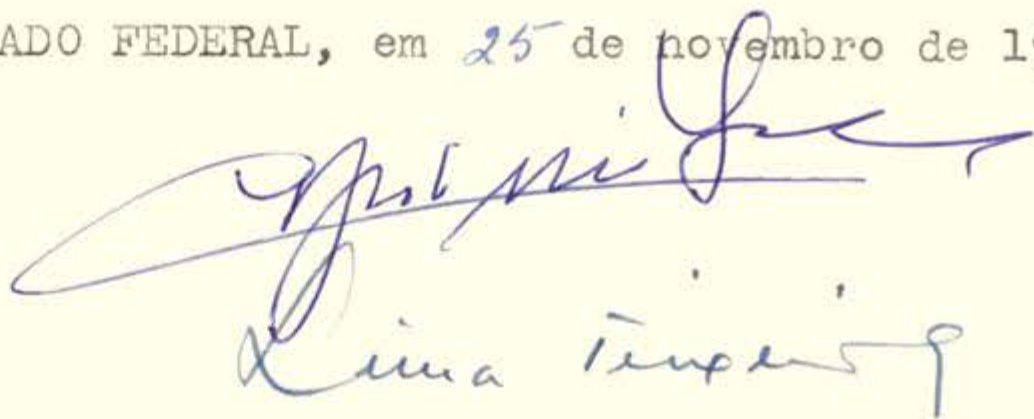 ADO FEDERAL, em 25 de novembro de 1
Lima Teixeira